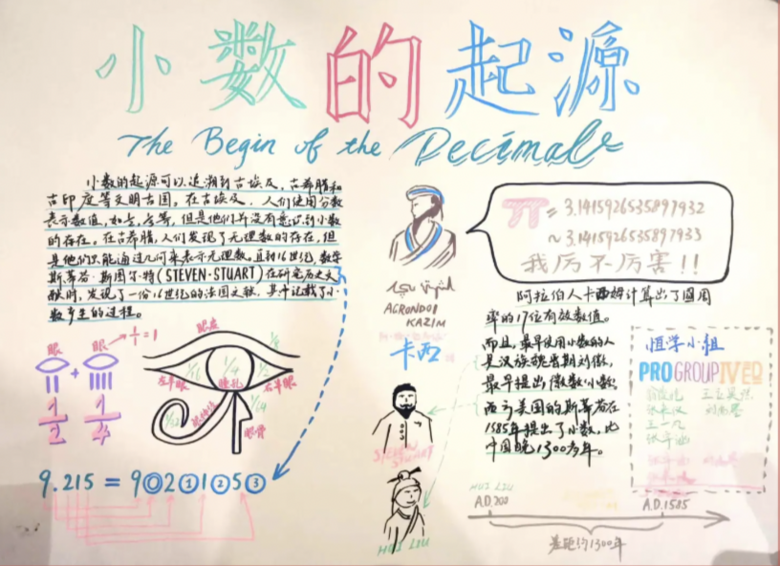 小数的起源
The Begin of the Decimals
小数的起源可以追溯到古埃及、古希腊和
古印度等文明古国。在古埃及,人们使用分数
表示数值,如½,¼等,但是他们并没有意识到小数
的存在。在古希腊,人们发现了无理数的存在,但
是他们只能通过几何来表示无理数。直到16世纪,数学
斯蒂芬·斯图尔特(STEVEN·STUART)在研究历史文
献时,发现了一份16世纪的法国文献,其中记载了小
数产生的过程。
眼 眼
1/2 + 1/4
眼皮
左半眼
瞳孔
右半眼
眼骨
9.215 = 9⓪2①1②5③
AGRONDOI
KAZIM
卡西
STEVEN
STUART
HUI LIU
π = 3.1415926535897932
~ 3.1415926535897933
我厉不厉害!!
阿拉伯人卡西姆计算出了圆周
率的17位有效数值。
而且,最早使用小数的人
是汉族魏晋期刘徽,
最早提出微数小数,
西方美国的斯蒂芬在
1585年提出了小数,比
中国晚1300多年。
恒学小组
PROGROUPIVED
HUI LIU
A.D.200
A.D.1585
差距约1300年